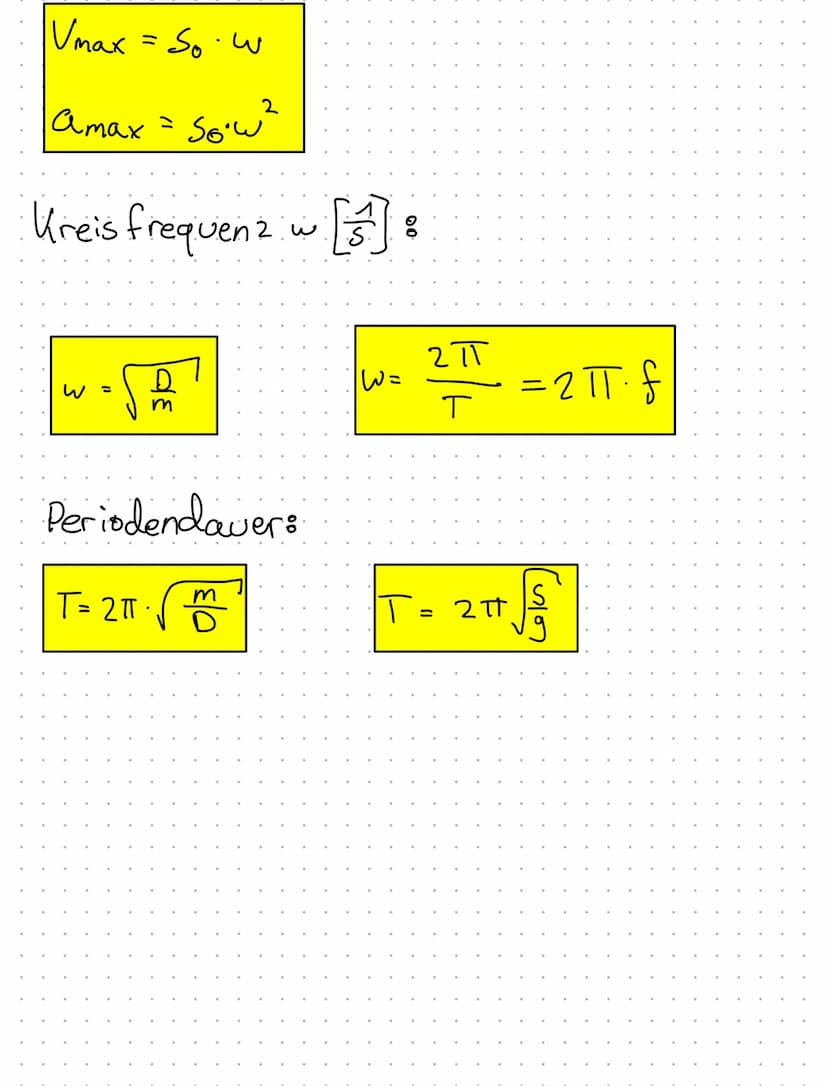 Vmax = S₀ · w
amax = S₀·w²
Kreisfrequenz w [1/s]:
w = √(D/m)
w = 2π/T = 2π·f
Periodendauer:
T = 2π·√(m/D)
T = 2π√(s/g)